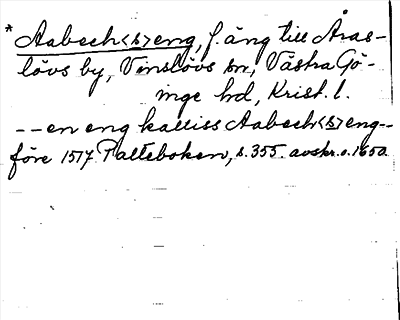 * Aabech<s>eng, f. äng till Åras-
lövs by, Vinslövs sn, Västra Gö-
inge hd, Krist. l.
-- en eng kalliss Aabech<s>eng--
före 1517 Palteboken, s. 355. avskr. o. 1650.